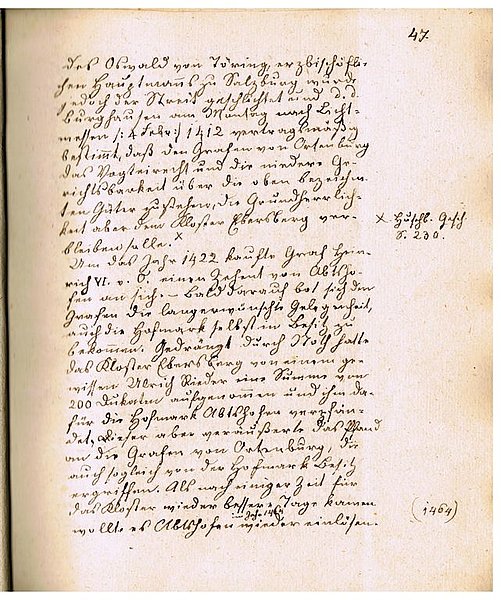 47.
des Oswald von Töring, erzbischöfli-
chen Hauptmanns zu Salzburg wurde
jedoch der Streit geschlichtet und
Burghausen am Montag nach Licht-
messen /: 4 Febr :/ 1412 vertragsmäßig
bestimmt, daß den Grafen von Ortenburg
das Vogteirecht und die niedere Ge-
richtsbarkeit über die oben bezeichne-
ten Güter zustehen, die Grundherrlich-
keit aber dem Kloster Ebersberg ver-
bleiben solle. ×
× Huschb. Gesch.
S. 230.
Um das Jahr 1422 kaufte Graf Hein-
rich VI. v. O. einen Zehent von Abtsho-
fen an sich. – Bald darauf bot sich den
Grafen die langerwünschte Gelegenheit,
auch die Hofmark selbst in Besitz zu
bekommen. Gedrängt durch Noth hatte
das Kloster Ebersberg von einem ge-
wissen Ulrich Rieder eine Summe von
200 Dukaten aufgenommen und ihm da-
für die Hofmark Abtshofen verpfän-
det, dieser aber veräußerte das Pfand
an die Grafen von Ortenburg, die
auch sogleich von der Hofmark Besitz
ergriffen. Als nach einiger Zeit für
das Kloster wieder bessere Tage kamen
wollte es Abtshofen wieder einlösen.
(1464)